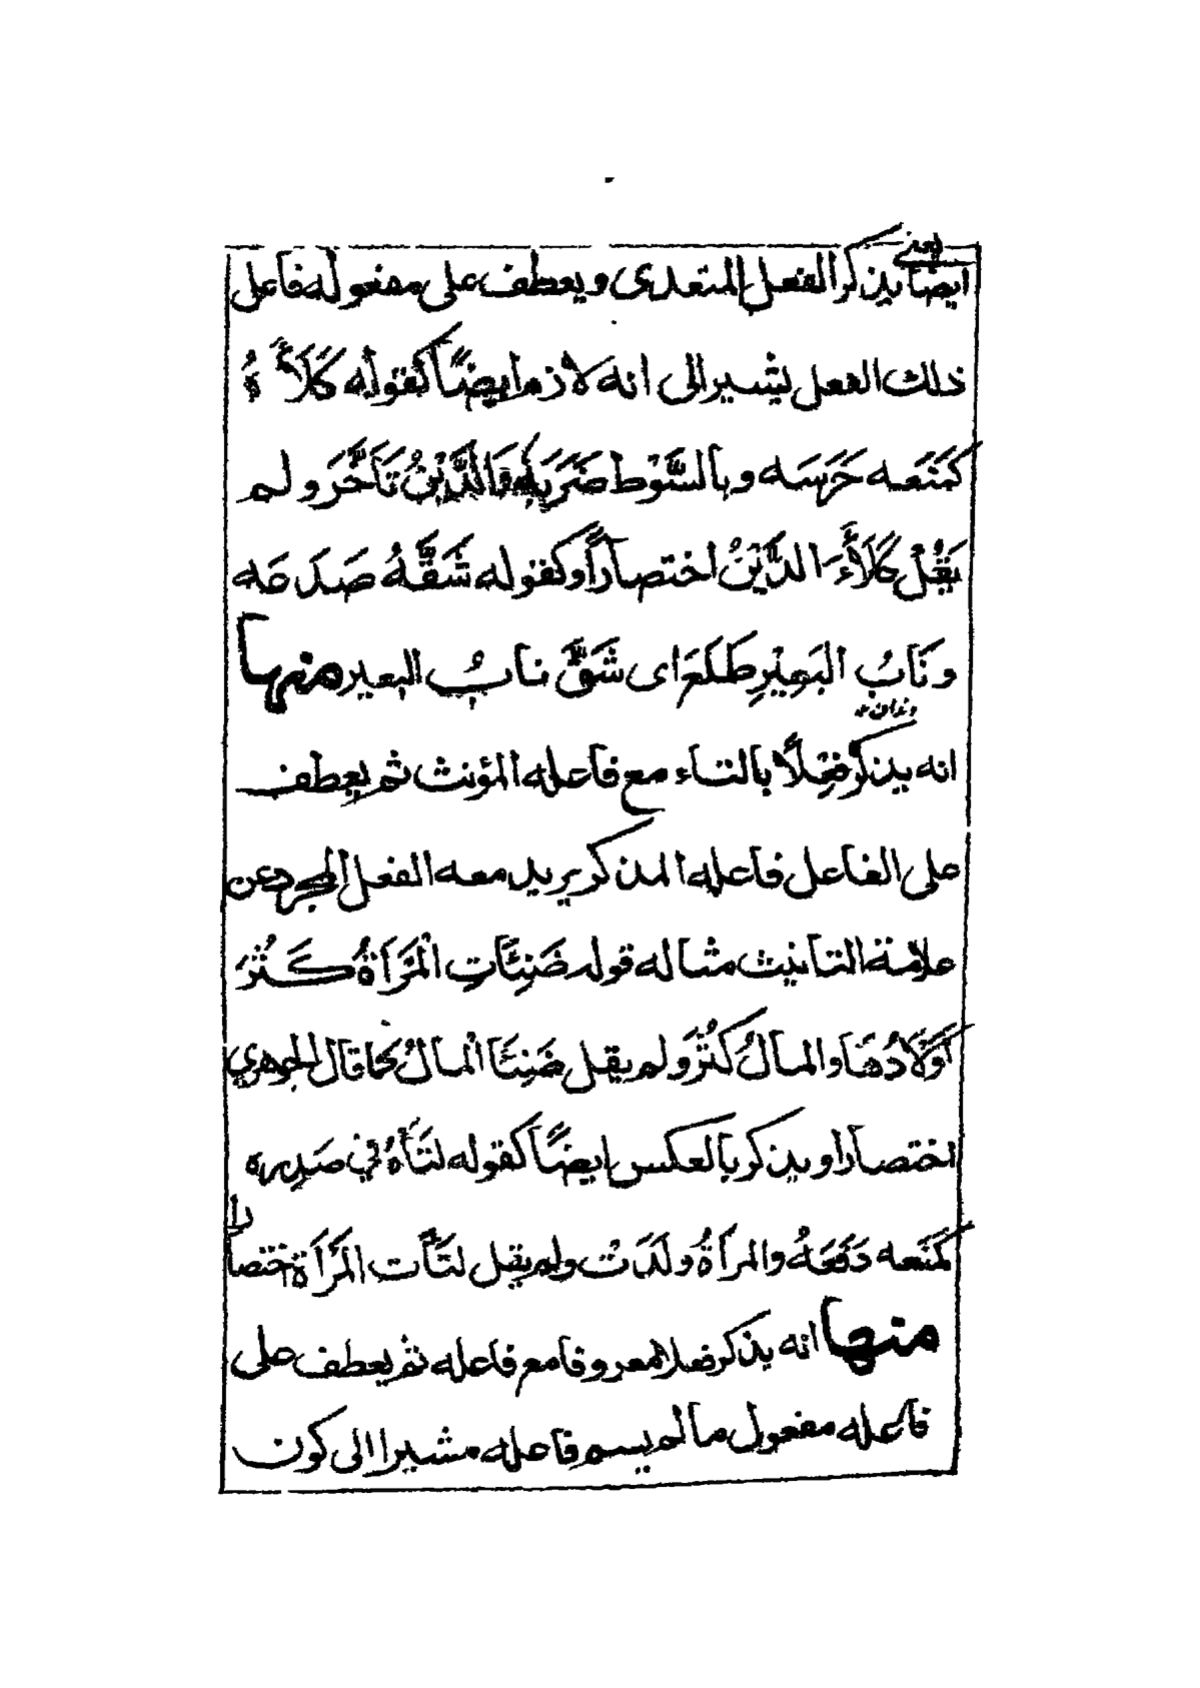 يعني
ايضًا يذكر الفعل المتعدى ويعطف على مفعوله فاعل
ذلك الفعل ليشير الى انه لازم ايضًا كقوله كَلَأَهُ
كَمَنَعَه حَرَسَه وبالسَّوْطِ ضَرَبَه وَالدَّيْنُ تَأَخَّرَ ولم
يَقُلْ كَلَأَ الدَّيْنُ اختصارًا وكقوله شَقَّهُ صَدَعَه
ونَابُ البَعِيْرِ طَلَعَ اى شَقَّ نابُ البعير منها
دندان
انه يذكر فِعْلًا بالتاء مع فاعله المؤنث ثم يعطف
على الفاعل فاعله المذكر يريد معه الفعل المجرد عن
علامة التانيث مثاله قوله ضَنِئَاتِ الْمَرْأَةُ كَثُرَ
أَوْلَادُهَا والمالُ كَثُرَ ولم يقل ضَنِئَا الْمالُ كما قال الجوهري
اختصارا ويذكر بالعكس ايضًا كقوله لتَأَهُ في صَدرِه
كمَنَعه دَفَعَهُ والمرأةُ ولَدَتْ ولم يقل لتَأَت المَرْأَة اختصارا
منها انه يذكر فعلا معروفا مع فاعله ثم يعطف على
فاعله مفعول مالم يسم فاعله مشيرا الى كون